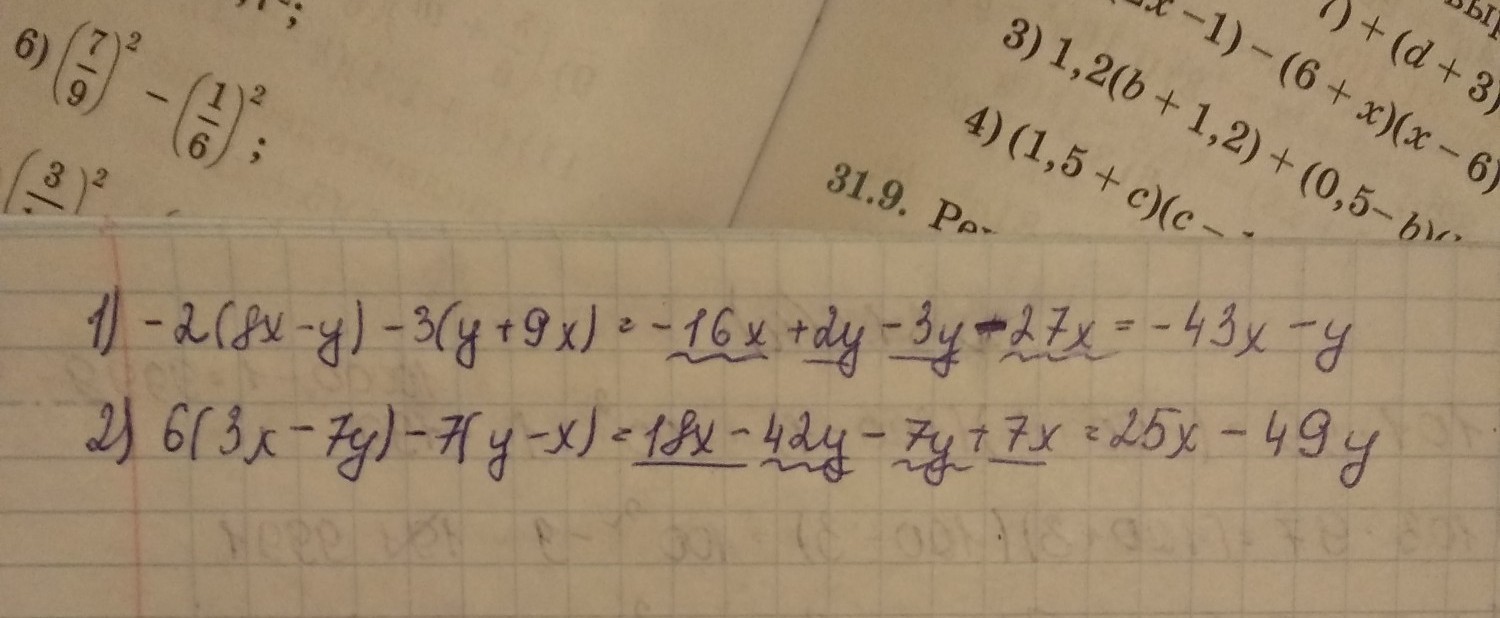 6) (7/9)² − (1/6)² ;
3
2x − 1) − (6 + x)(x − 6)
) + (d + 3)
3) 1,2(b + 1,2) + (0,5 − b)(
4) (1,5 + c)(c −
31.9.
1) -2(8x-y) -3(y+9x) = -16x +2y -3y -27x = -43x -y
2) 6(3x-7y) -7(y-x) = 18x -42y -7y +7x = 25x -49y